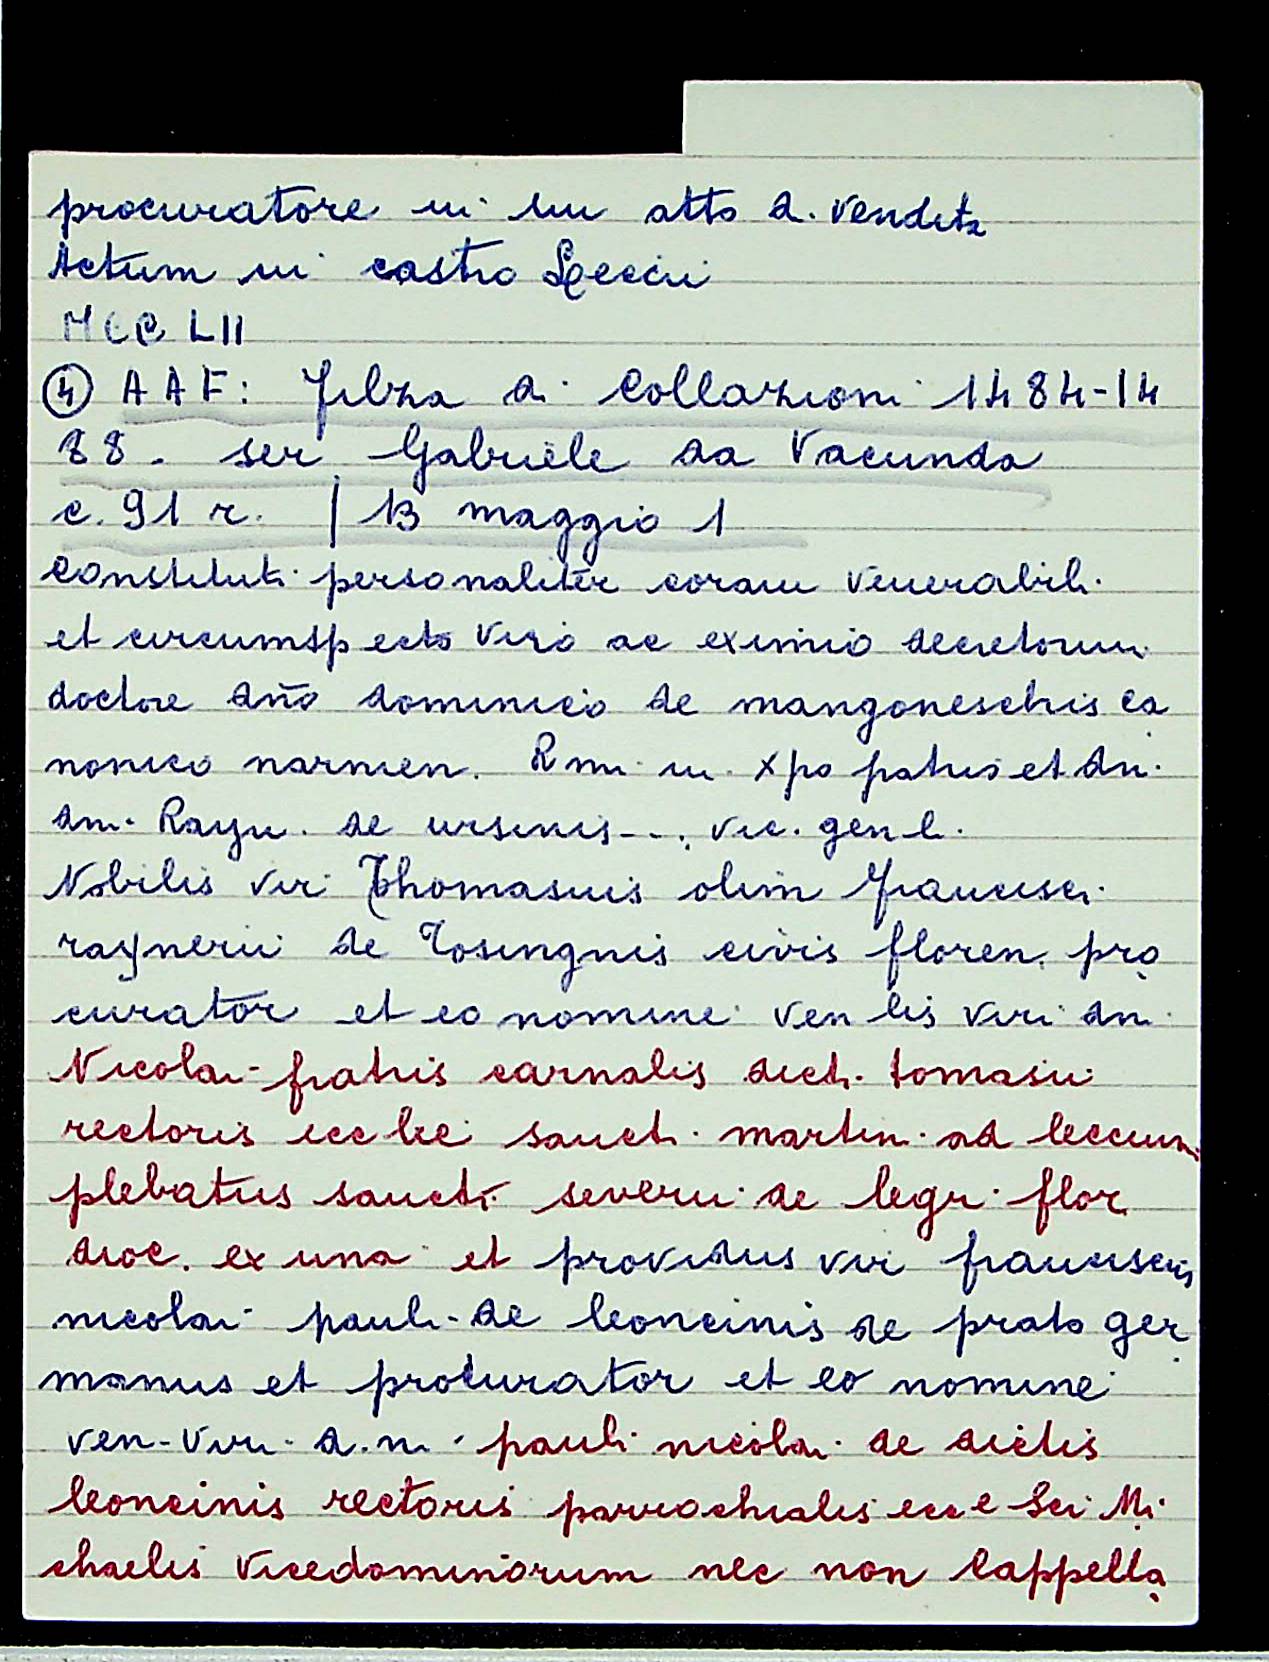 procuratore in un atto di vendita
Actum in castro Leccii
MCCLII
④ AAF: Filza di Collazioni 1484-14
88. ser Gabriele da Vacunda
c. 91 r. | 13 maggio 1
constituti personaliter coram venerabili
et circumspecto viro ac eximio decretorum
doctore dño dominico de mangoneschis ca
nonico narnien. Rmi in xpo patris et dn.
dni. Rayn. de ursinis--. vic. gen l.
Nobilis vir Thomasuis olim francisci
raynerii de Tosingnis civis floren. pro
curator et eo nomine ven lis viri dn.
Nicolai fratris carnalis dicti tomasii
rectoris eccl ie sancti martini ad leccium
plebatus sancti severii de legri flor
dioc. ex una et providus vir franciscus
nicolai pauli de leoncinis de prato ger
manus et procurator et eo nomine
ven. viri d.ni pauli nicolai de dictis
leoncinis rectoris parrochialis ecc e Sci Mi
chaelis Vicedominorum nec non Cappella